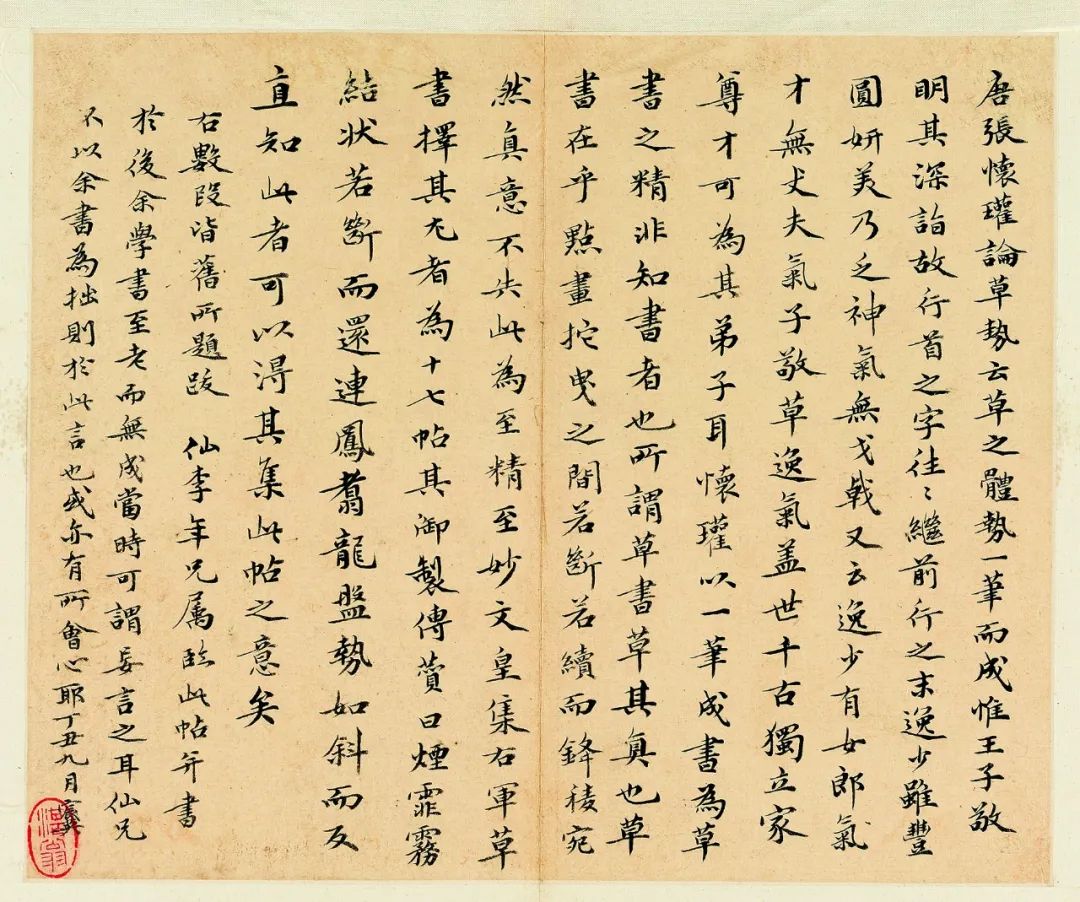 唐張懷瓘論草勢云草之體勢一筆而成惟王子敬
明其深詣故行首之字往〻繼前行之末逸少雖豐
圓妍美乃乏神氣無戈戟又云逸少有女郎氣
才無丈夫氣子敬草逸氣盖世千古獨立家
尊才可為其弟子耳懷瓘以一筆成書為草
書之精非知書者也所謂草書草其真也草
書在乎點畫拕曳之間若斷若續而鋒稜宛
然真意不失此為至精至妙文皇集右軍草
書擇其尤者為十七帖其御製傳賛曰煙霏霧
結狀若斷而還連鳳翥龍盤勢如斜而反
直知此者可以得其集此帖之意矣
右數段皆舊所題跋 仙李年兄属臨此帖并書
於後余學書至老而無成當時可謂妄言之耳仙兄
不以余書為拙則於此言也或亦有所會心耶丁丑九月
湛翁